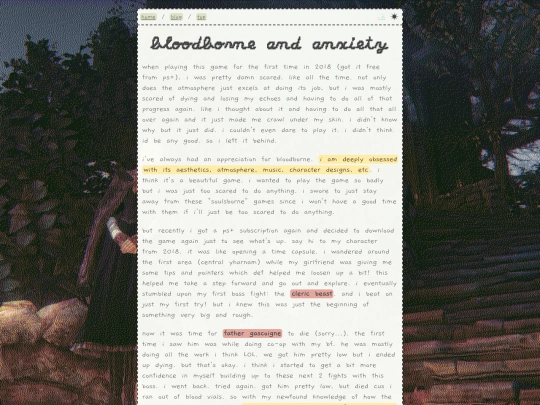 home / blog / tag
bloodborne and anxiety
when playing this game for the first time in 2018 (got it free
from ps+), i was pretty damn scared. like all the time. not only
does the atmosphere just excels at doing its job, but i was mostly
scared of dying and losing my echoes and having to do all of that
progress again. like i thought about it and having to do all that all
over again and it just made me crawl under my skin. i didn't know
why but it just did. i couldn't even dare to play it. i didn't think
id be any good. so i left it behind.
i've always had an appreciation for bloodborne. i am deeply obsessed
with its aesthetics, atmosphere, music, character designs, etc. i
think it's a beautiful game. i wanted to play the game so badly
but i was just too scared to do anything. i swore to just stay
away from these "soulsborne" games since i won't have a good time
with them if i'll just be too scared to do anything.
but recently i got a ps+ subscription again and decided to download
the game again just to see what's up. say hi to my character
from 2018. it was like opening a time capsule. i wandered around
the first area (central yharnam) while my girlfriend was giving me
some tips and pointers which def helped me loosen up a bit! this
helped me take a step forward and go out and explore. i eventually
stumbled upon my first boss fight: the cleric beast. and i beat on
just my first try! but i knew this was just the beginning of
something very big and rough.
now it was time for father gascoigne to die (sorry...). the first
time i saw him was while doing co-op with my bf. he was mostly
doing all the work i think LOL. we got him pretty low but i ended
up dying. but that's okay. i think i started to get a bit more
confidence in myself building up to these next 2 fights with this
boss. i went back. tried again. got him pretty low, but died cus i
ran out of blood vials. so with my newfound knowledge of how the